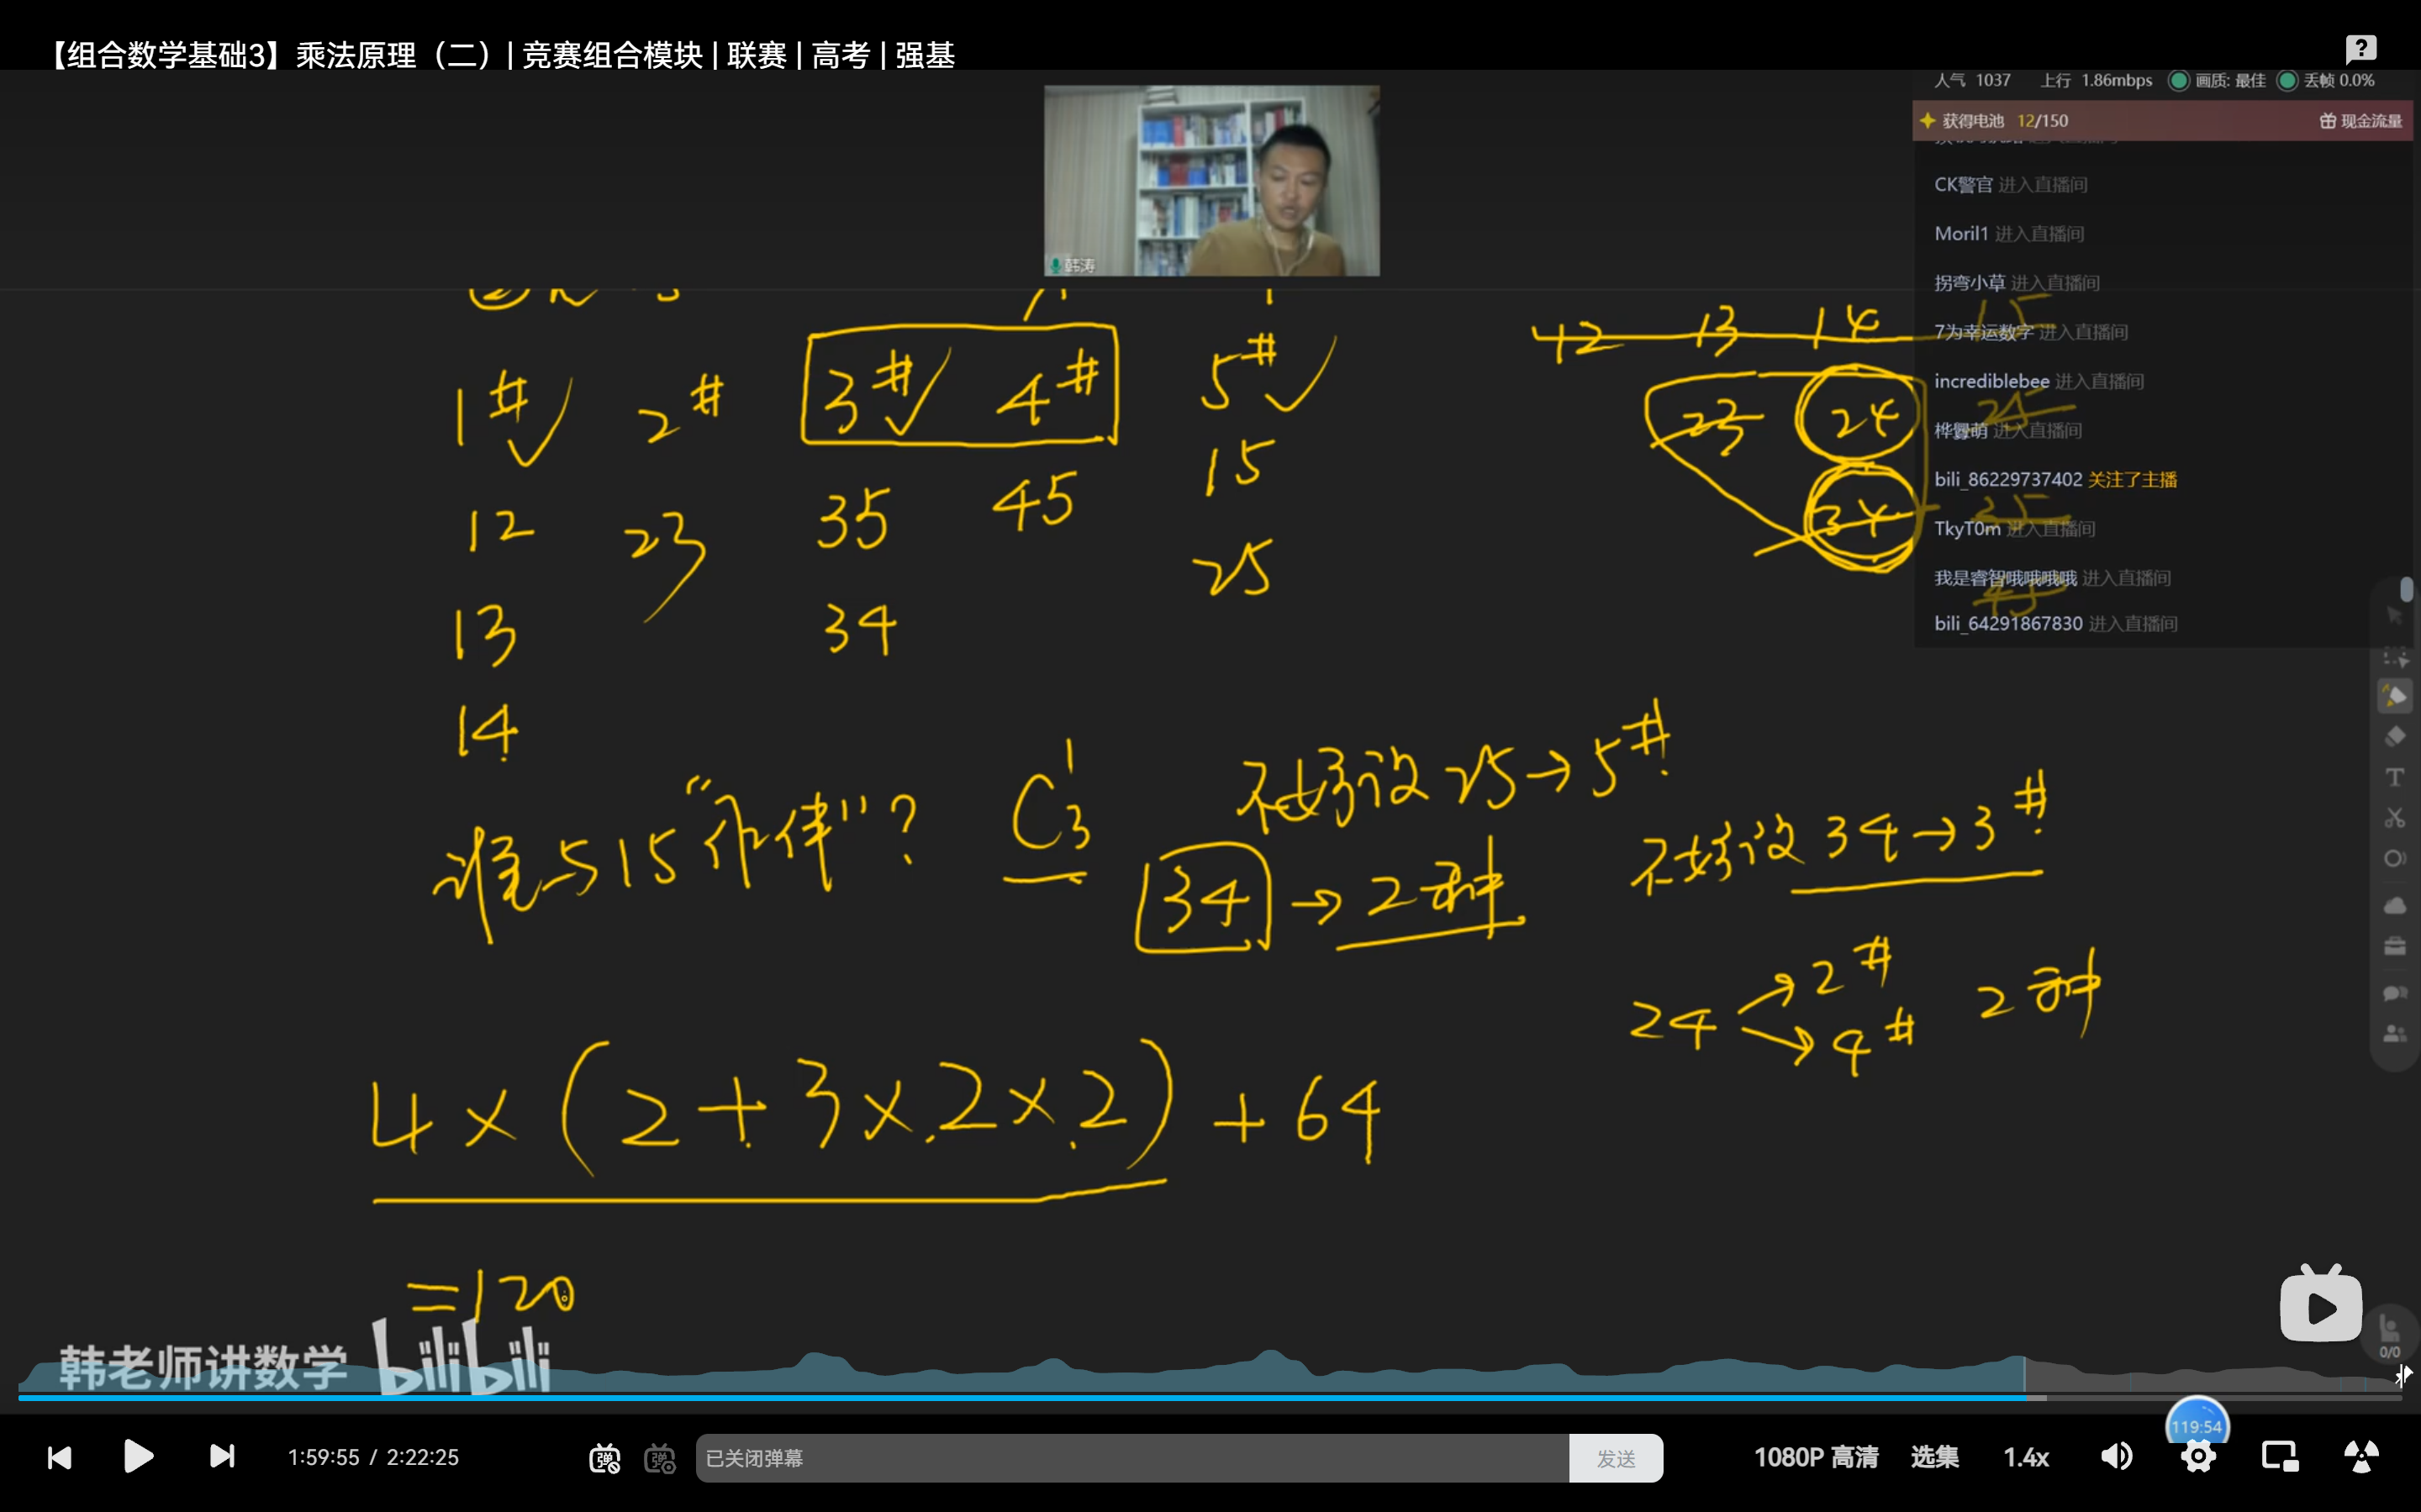 【组合数学基础3】乘法原理（二）| 竞赛组合模块 | 联赛 | 高考 | 强基
人气 1037 上行 1.86mbps 画质: 最佳 丢帧 0.0%
获得电池 12/150 现金流量
CK警官 进入直播间
Moril1 进入直播间
拐弯小草 进入直播间
7为幸运数字 进入直播间
incrediblebee 进入直播间
进入直播间
bili_86229737402 关注了主播
TkyT0m 进入直播间
我是睿智哦哦哦哦 进入直播间
bili_64291867830 进入直播间
韩涛
12 13 14 15
23 24 25
34 35
45
1# 2# 3# 4# 5#
12 23 35 45 15
13 34 25
14
谁与15“作伴”? C₃¹
不妨设 25→5#
34 → 2种
不妨设 34→3#
24 → 2#
→ 4# 2种
4×(2+3×2×2)+64
=120
韩老师讲数学 bilibili
0/0
119:54
1:59:55 / 2:22:25
弹 弹
已关闭弹幕
发送
1080P 高清 选集 1.4x